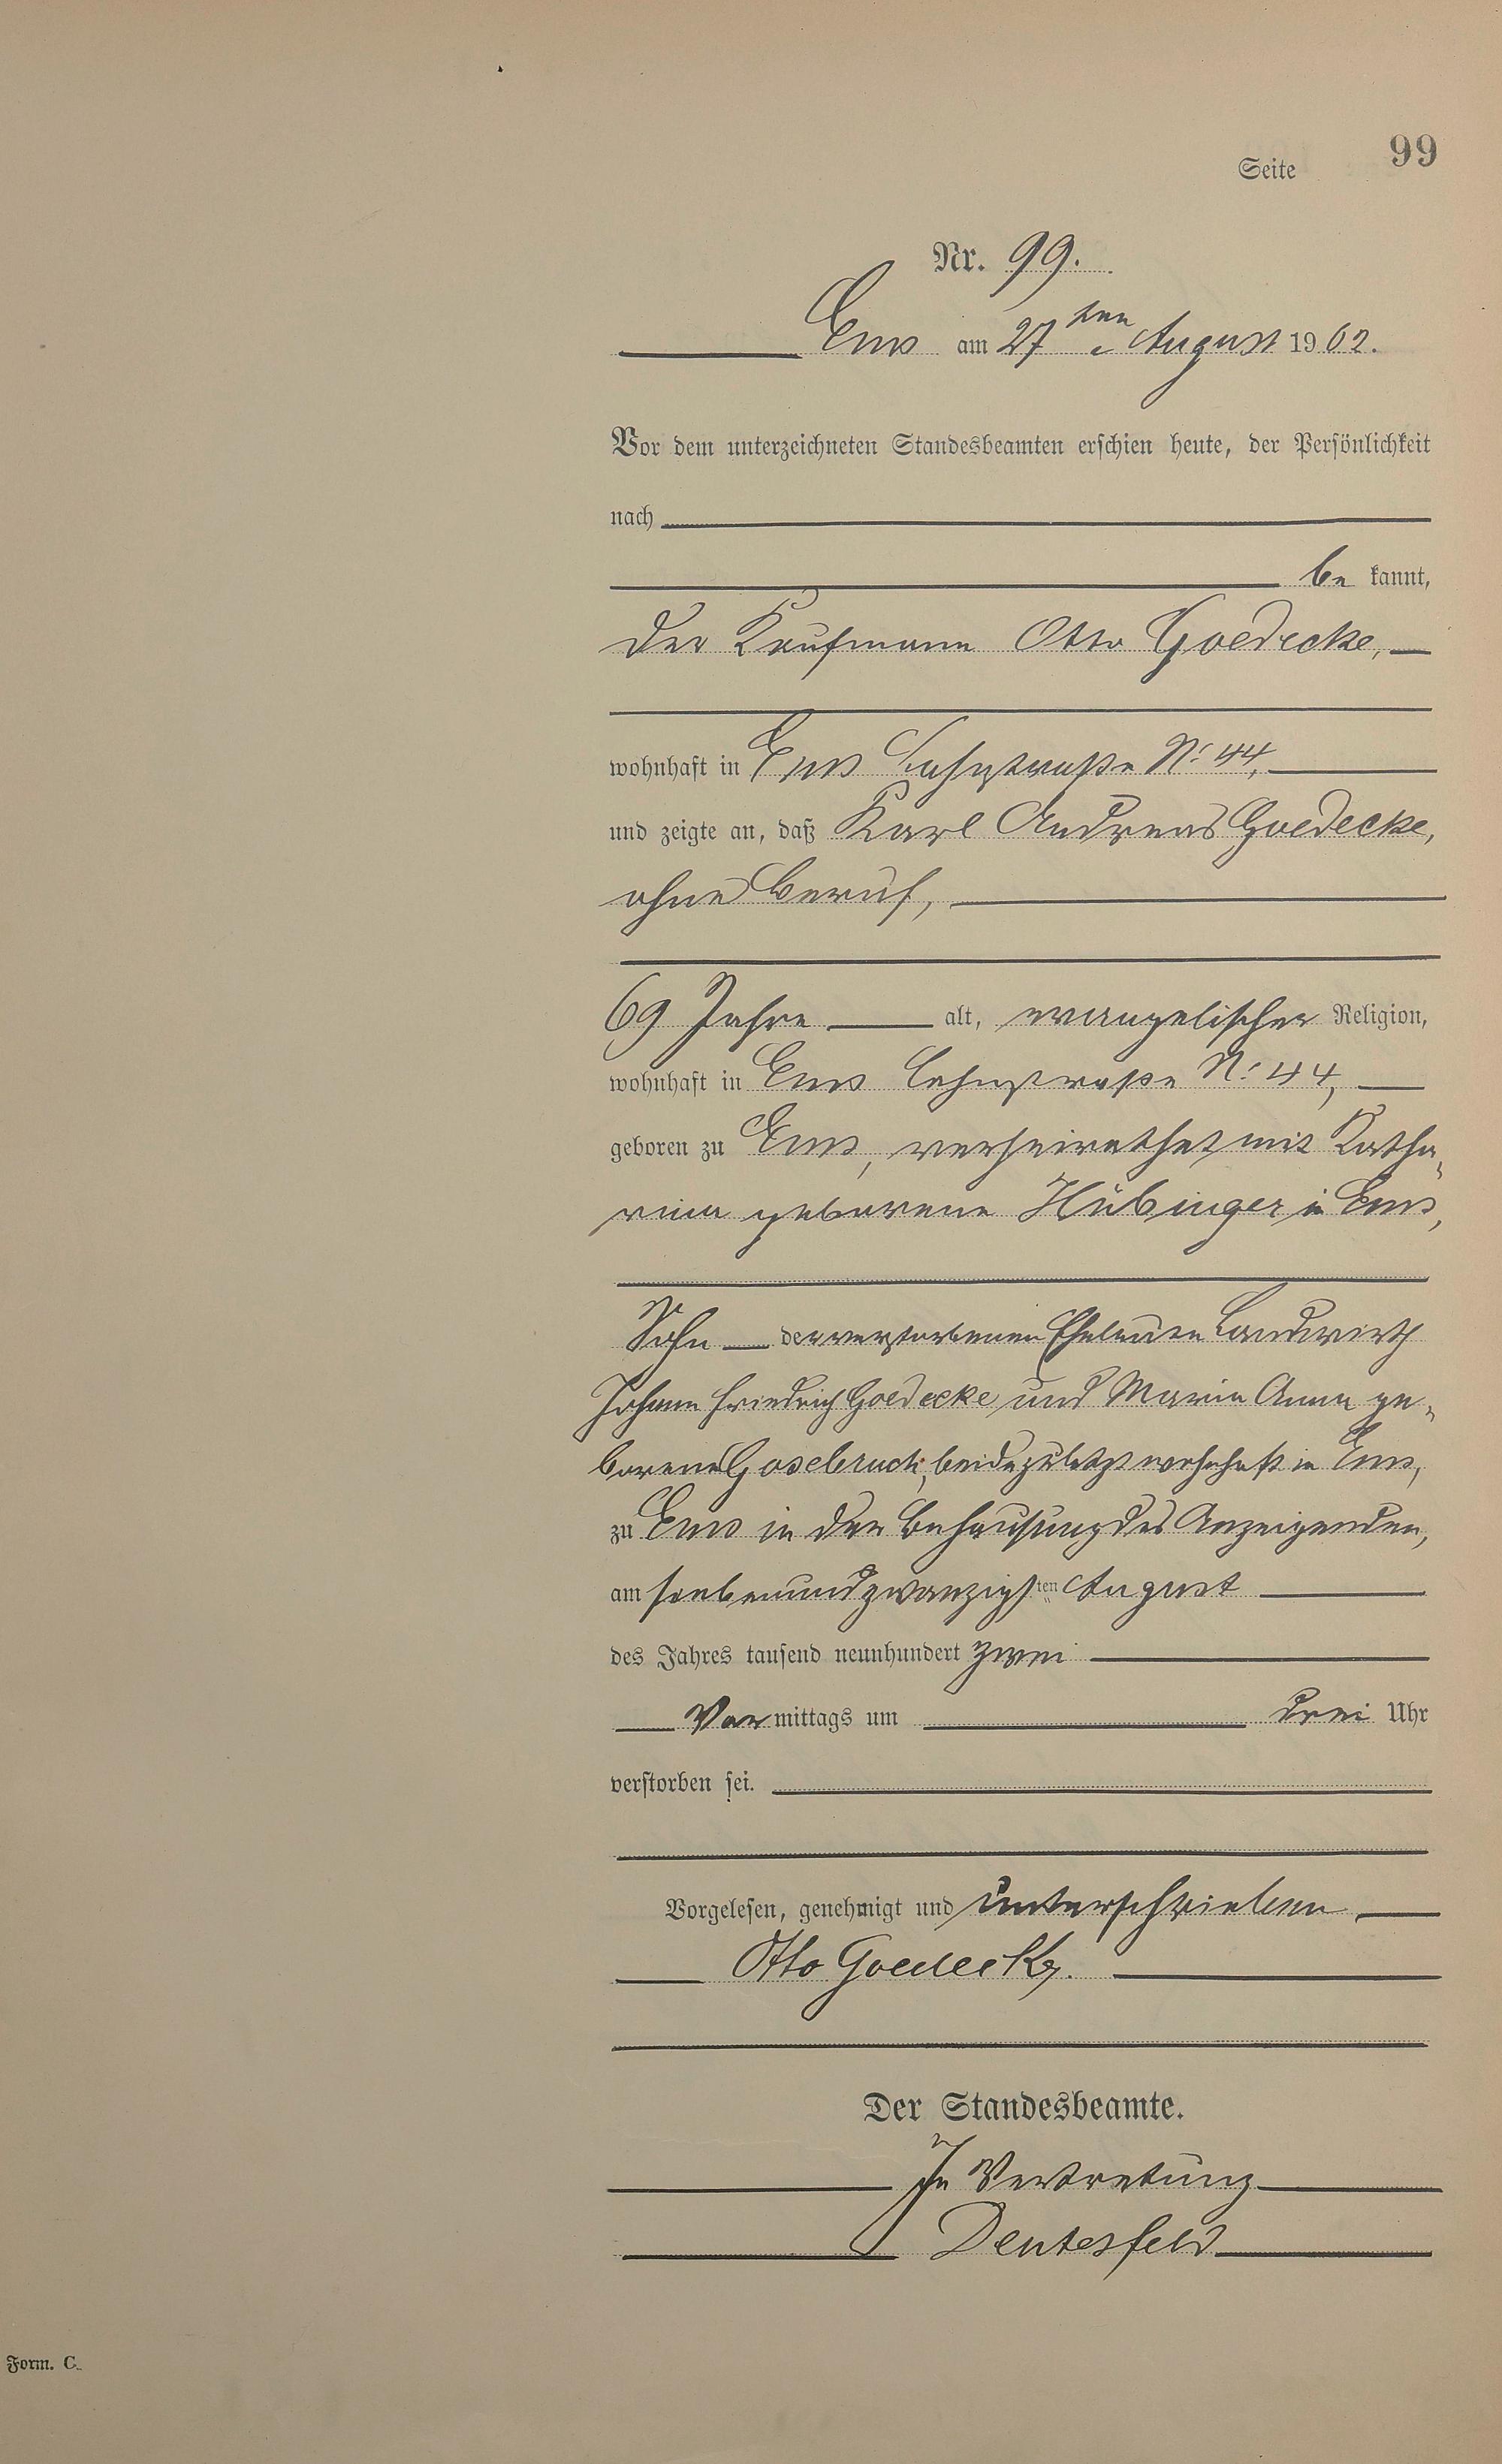 Seite 99
Nr. 99.
Ems am 27ten August 1902.
Vor dem unterzeichneten Standesbeamten erschien heute, der Persönlichkeit
nach
be kannt,
der Kaufmann Otto Goedecke,
wohnhaft in Ems Lahnstraße N: 44,
und zeigte an, daß Karl Andreas Goedecke,
ohne Beruf,
69 Jahre alt, evangelischer Religion,
wohnhaft in Ems Lahnstraße N: 44,
geboren zu Ems, verheirathet mit Katha-
rina geborene Hübinger in Ems,
Sohn der verstorbenen Eheleute Landwirth
Johann Friedrich Goedecke und Maria Anna ge-
borene Gosebruch, beide zuletzt wohnhaft in Ems,
zu Ems in der Behausung des Anzeigenden,
am siebenundzwanzigsten August
des Jahres tausend neunhundert zwei
Vor mittags um drei Uhr
verstorben sei.
Vorgelesen, genehmigt und unterschrieben
Otto Goedecke.
Der Standesbeamte.
In Vertretung
Deutesfeld
Form. C.